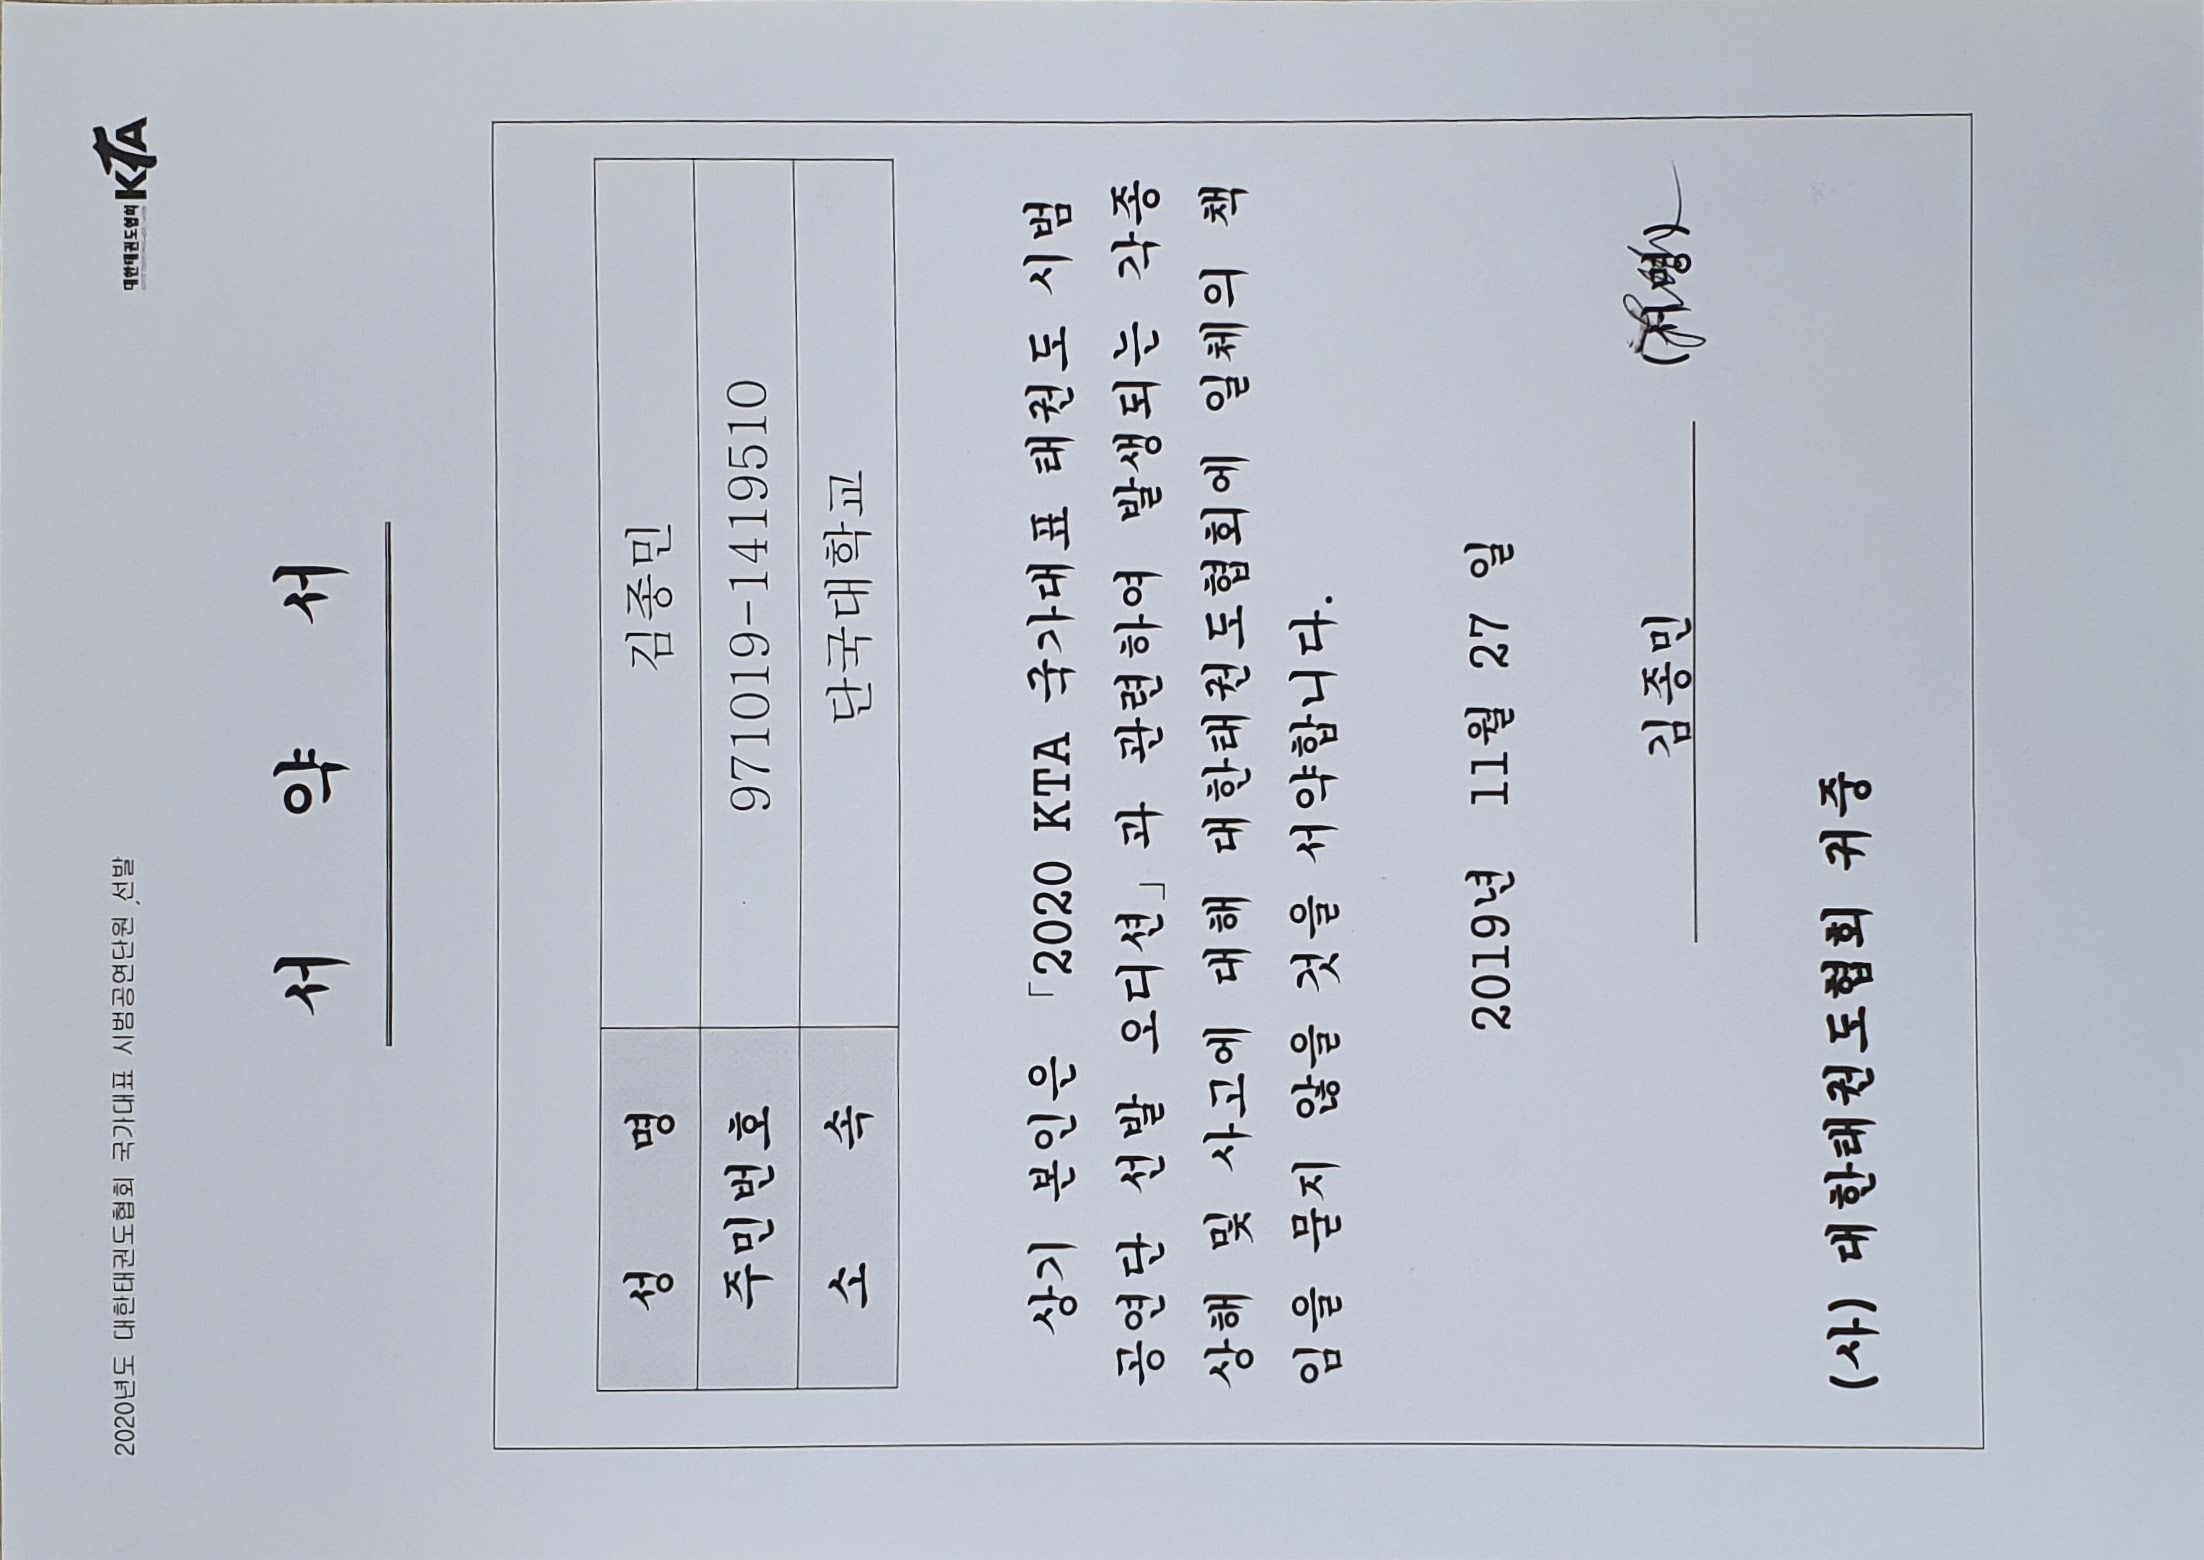 2020년도 대한태권도협회 국가대표 시범공연단원 선발
대한태권도협회 KTA
서 약 서
성 명 김종민
주민번호 971019-1419510
소 속 단국대학교
상기 본인은 「2020 KTA 국가대표 태권도 시범
공연단 선발 오디션」과 관련하여 발생되는 각종
상해 및 사고에 대해 대한태권도협회에 일체의 책
임을 물지 않을 것을 서약합니다.
2019년 11월 27 일
김종민 (서명)
(사) 대한태권도협회 귀중